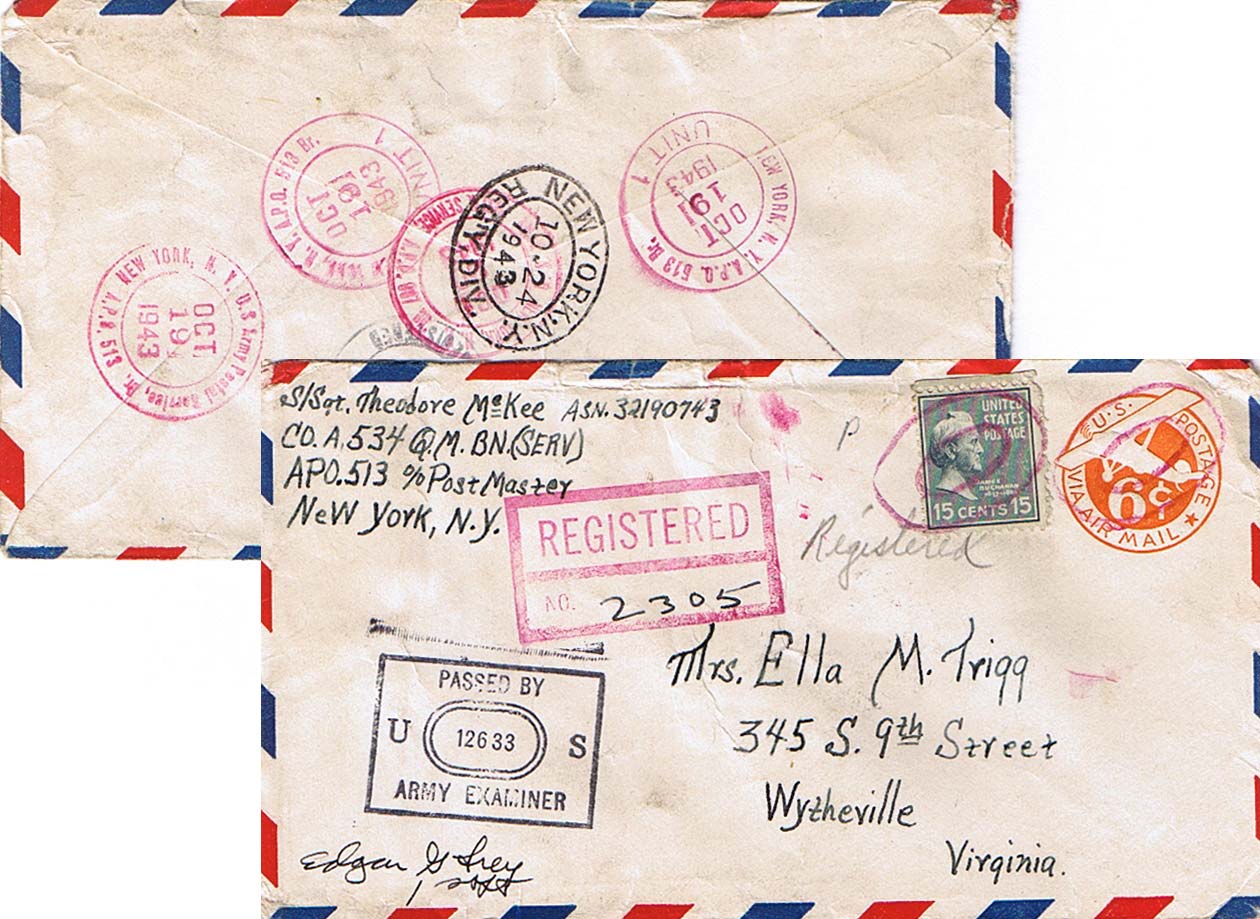 NEW YORK, N. Y. U.S Army Postal Service, Br. 513 A.P.O.
OCT.
19
1943
N. Y. A.P.O. 513 Br.
UNIT 1
OCT
18
1943
SERVICE,
NEW YORK, N.Y.
REG'Y. DIV.
10-24
1943
NEW YORK, N. Y. A.P.O. 513 Br.
UNIT 1
OCT.
19
1943
S/Sgt. Theodore McKee ASN. 32190743
CO. A. 534 Q.M. BN. (SERV)
APO. 513 c/o Post Master
New York, N.Y.
P
UNITED
STATES
POSTAGE
JAMES
BUCHANAN
15 CENTS 15
U.S. POSTAGE
6¢
VIA AIR MAIL
REGISTERED
NO. 2305
Registered
PASSED BY
U 12633 S
ARMY EXAMINER
Mrs. Ella M. Trigg
345 S. 9th Street
Wytheville
Virginia.
Edgar G